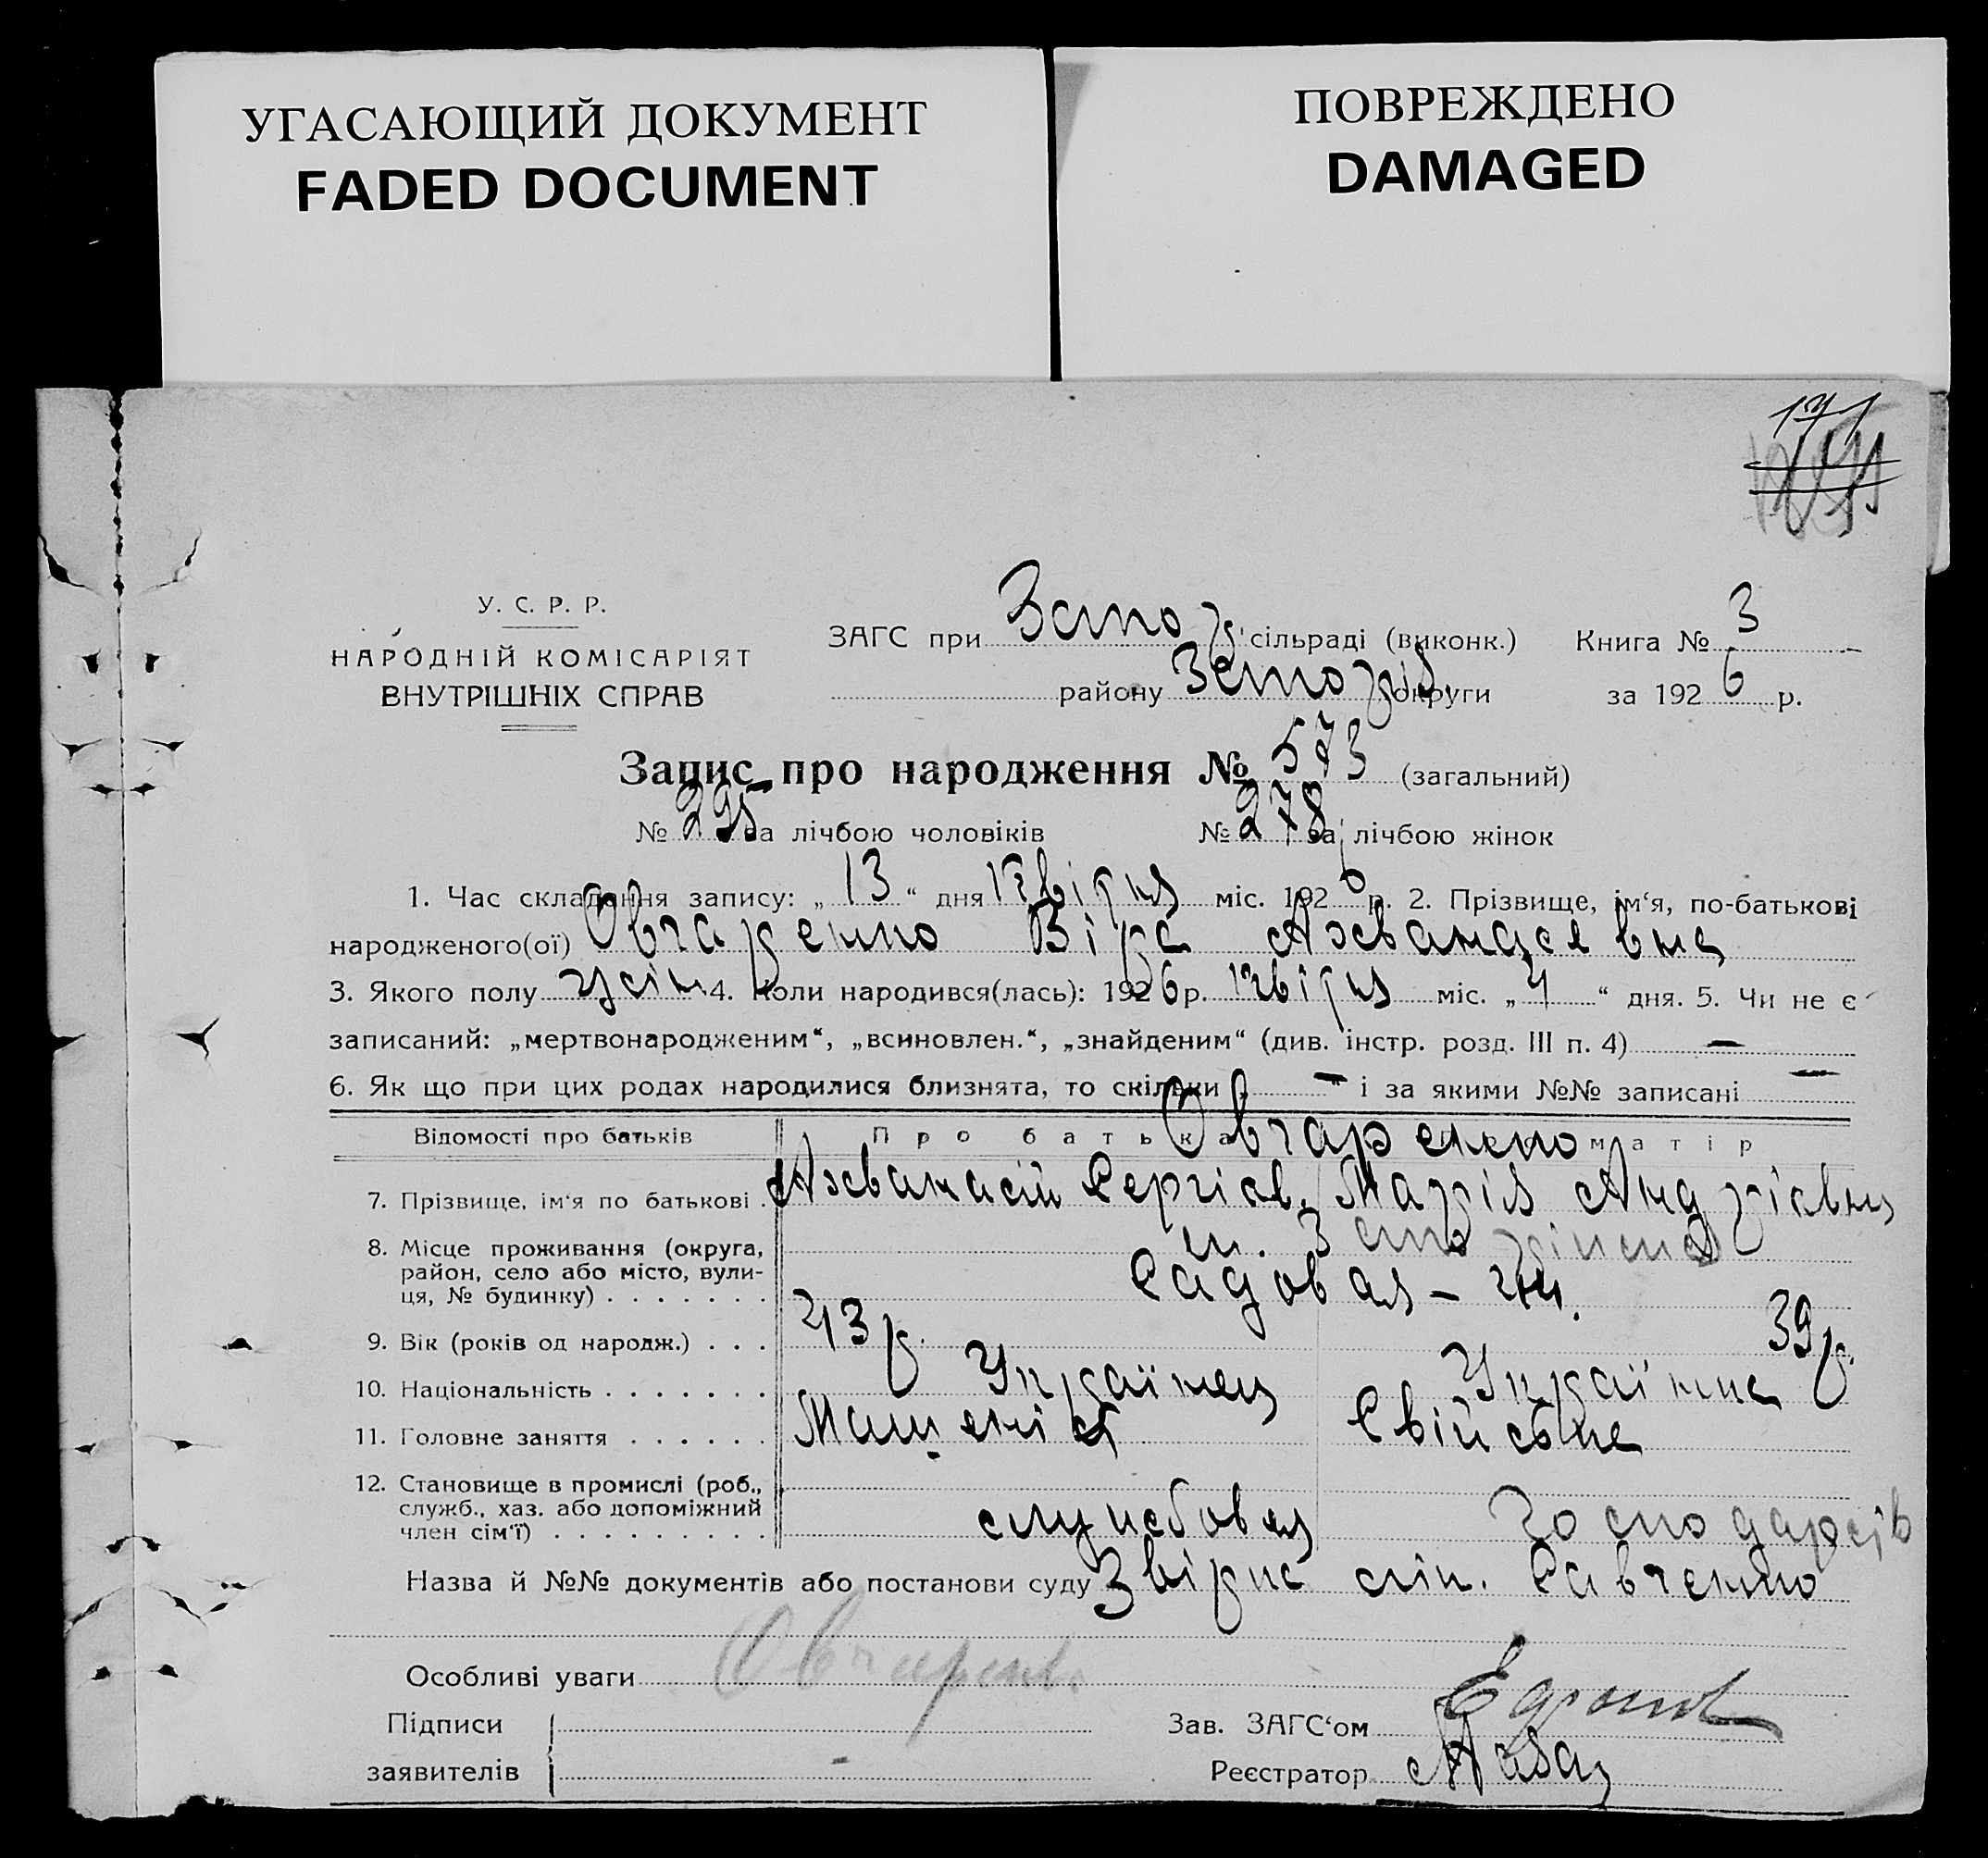 УГАСАЮЩИЙ ДОКУМЕНТ
FADED DOCUMENT
ПОВРЕЖДЕНО
DAMAGED
171
У. С. Р. Р.
НАРОДНІЙ КОМІСАРІЯТ
ВНУТРІШНІХ СПРАВ
ЗАГС при Запор. сільраді (виконк.) Книга № 3
району Запоріз. округи за 1926 р.
Запис про народження № 573 (загальний)
№ 295 за лічбою чоловіків № 278 за лічбою жінок
1. Час складання запису: „13“ дня квітня міс. 1926 р. 2. Прізвище, ім‘я, по-батькові
народженого(ої) Овчаренко Віра Афанасівна
3. Якого полу жін. 4. Коли народився(лась): 1926 р. квітня міс. „4“ дня. 5. Чи не є
записаний: „мертвонародженим“, „всиновлен.“, „знайденим“ (див. інстр. розд. III п. 4) —
6. Як що при цих родах народилися близнята, то скільки „ — “ і за якими №№ записані —
Відомості про батьків Про батька матір
Овчаренко
7. Прізвище, ім‘я по батькові . Сергієв. Марія Андріївна
8. Місце проживання (округа,
район, село або місто, вули-
ця, № будинку) . . . . . . . Садовая –
9. Вік (років од народж.) . . . 43 р. 39 р.
10. Національність . . . . . . . Українец Українка
11. Головне заняття . . . . . .
12. Становище в промислі (роб.,
служб., хаз. або допоміжний
член сім‘ї) . . . . . . . . . . службовец
Назва й №№ документів або постанови суду Савченко
Особливі уваги
Овчаренко
Підписи
заявителів
Зав. ЗАГС‘ом
Реєстратор